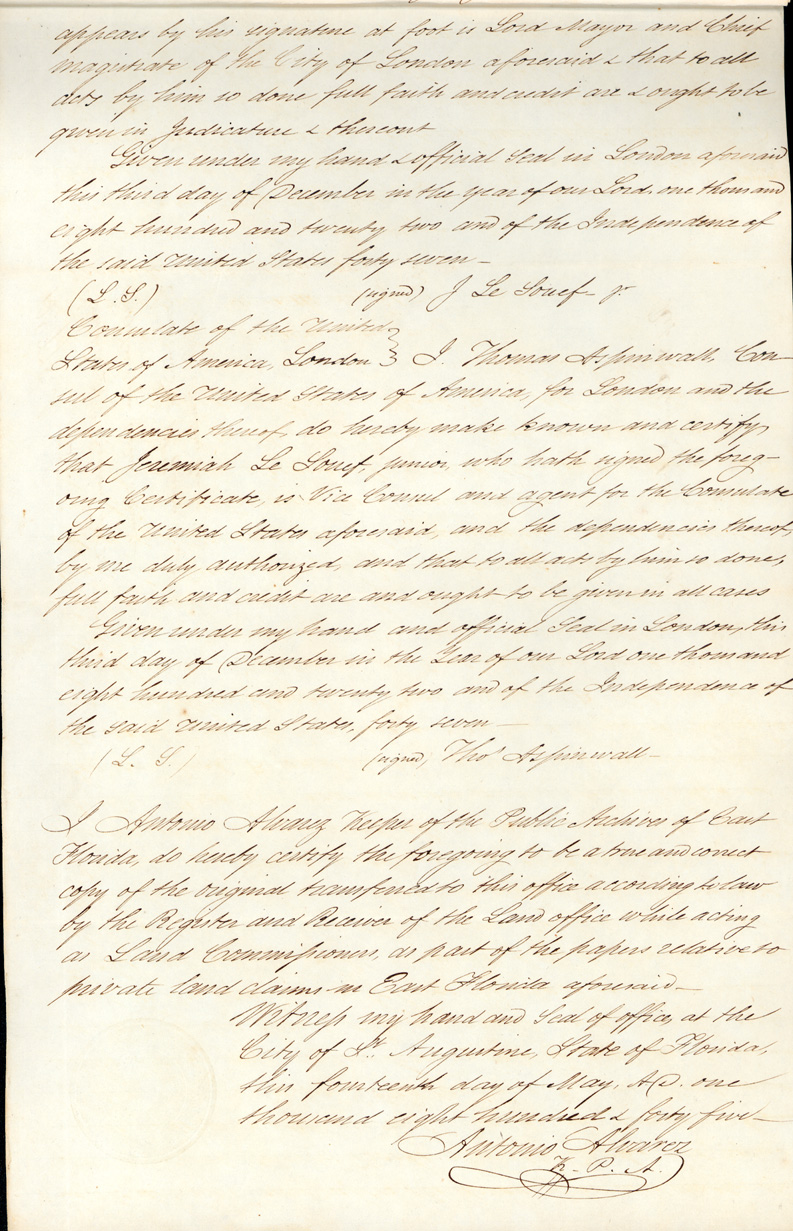 appears by his signature at foot is Lord Mayor and Chief
magistrate of the City of London aforesaid & that to all
acts by him so done full faith and credit are & ought to be
given in Judicature & thereout
Given under my hand & official Seal in London aforesaid
this third day of December in the year of our Lord one thousand
eight hundred and twenty two and of the Independence of
the said United States forty seven —
(L. S.) (signed) J Le Souef jr
Consulate of the United
States of America, London } I, Thomas Aspinwall, Con-
sul of the United States of America, for London and the
dependencies thereof, do hereby make known and certify,
that Jeremiah Le Souef, junior, who hath signed the foreg-
oing Certificate, is Vice Consul and agent for the Consulate
of the United States aforesaid, and the dependencies thereof,
by me duly authorized, and that to all acts by him so done,
full faith and credit are and ought to be given in all cases
Given under my hand and official Seal in London, this
third day of December in the Year of our Lord one thousand
eight hundred and twenty two and of the Independence of
the said United States, forty seven —
(L. S.) (signed) Thos Aspinwall —
I Antonio Alvarez Keeper of the Public Archives of East
Florida, do hereby certify the foregoing to be a true and correct
copy of the original transferred to this office according to law
by the Register and Receiver of the Land office while acting
as Land Commissioners, as part of the papers relative to
private land claims in East Florida aforesaid —
Witness my hand and Seal of office, at the
City of St. Augustine, State of Florida,
this fourteenth day of May, A.D. one
thousand eight hundred & forty five —
Antonio Alvarez
K. P. A.